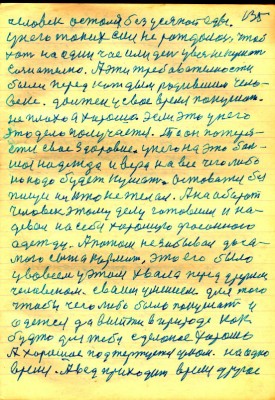 138
человек остался без усякой еды.
у него таких сил не родилось, чтоб
хотя на один час или ден увся не кушат
сознательно. А эти требовательности
были перед каждым родившим чело-
веке. должен у свое время покушат.
не плохо а хорошо. Если это у него
это дело получается. То он потеря-
ет и свое здоровие. у него на это бол-
шая надежда и вера на все чего либо
надо будет кушат. Оставатся без
пищи никто не желал. А наоборот
человек этому делу готовился и на-
девал на себя хорошую фасонного
одежду. А потом не забывал до са-
мого сыта кормит, это его было
у совсем у этом хвала перед другим
человеком. своим умением. для того
чтобы чего либо было покушат и
одется да выйти в природу как
будто для тебя сделоное хорошо
А хорошое подтертуется одном. на одно
время. А вед приходит время другое